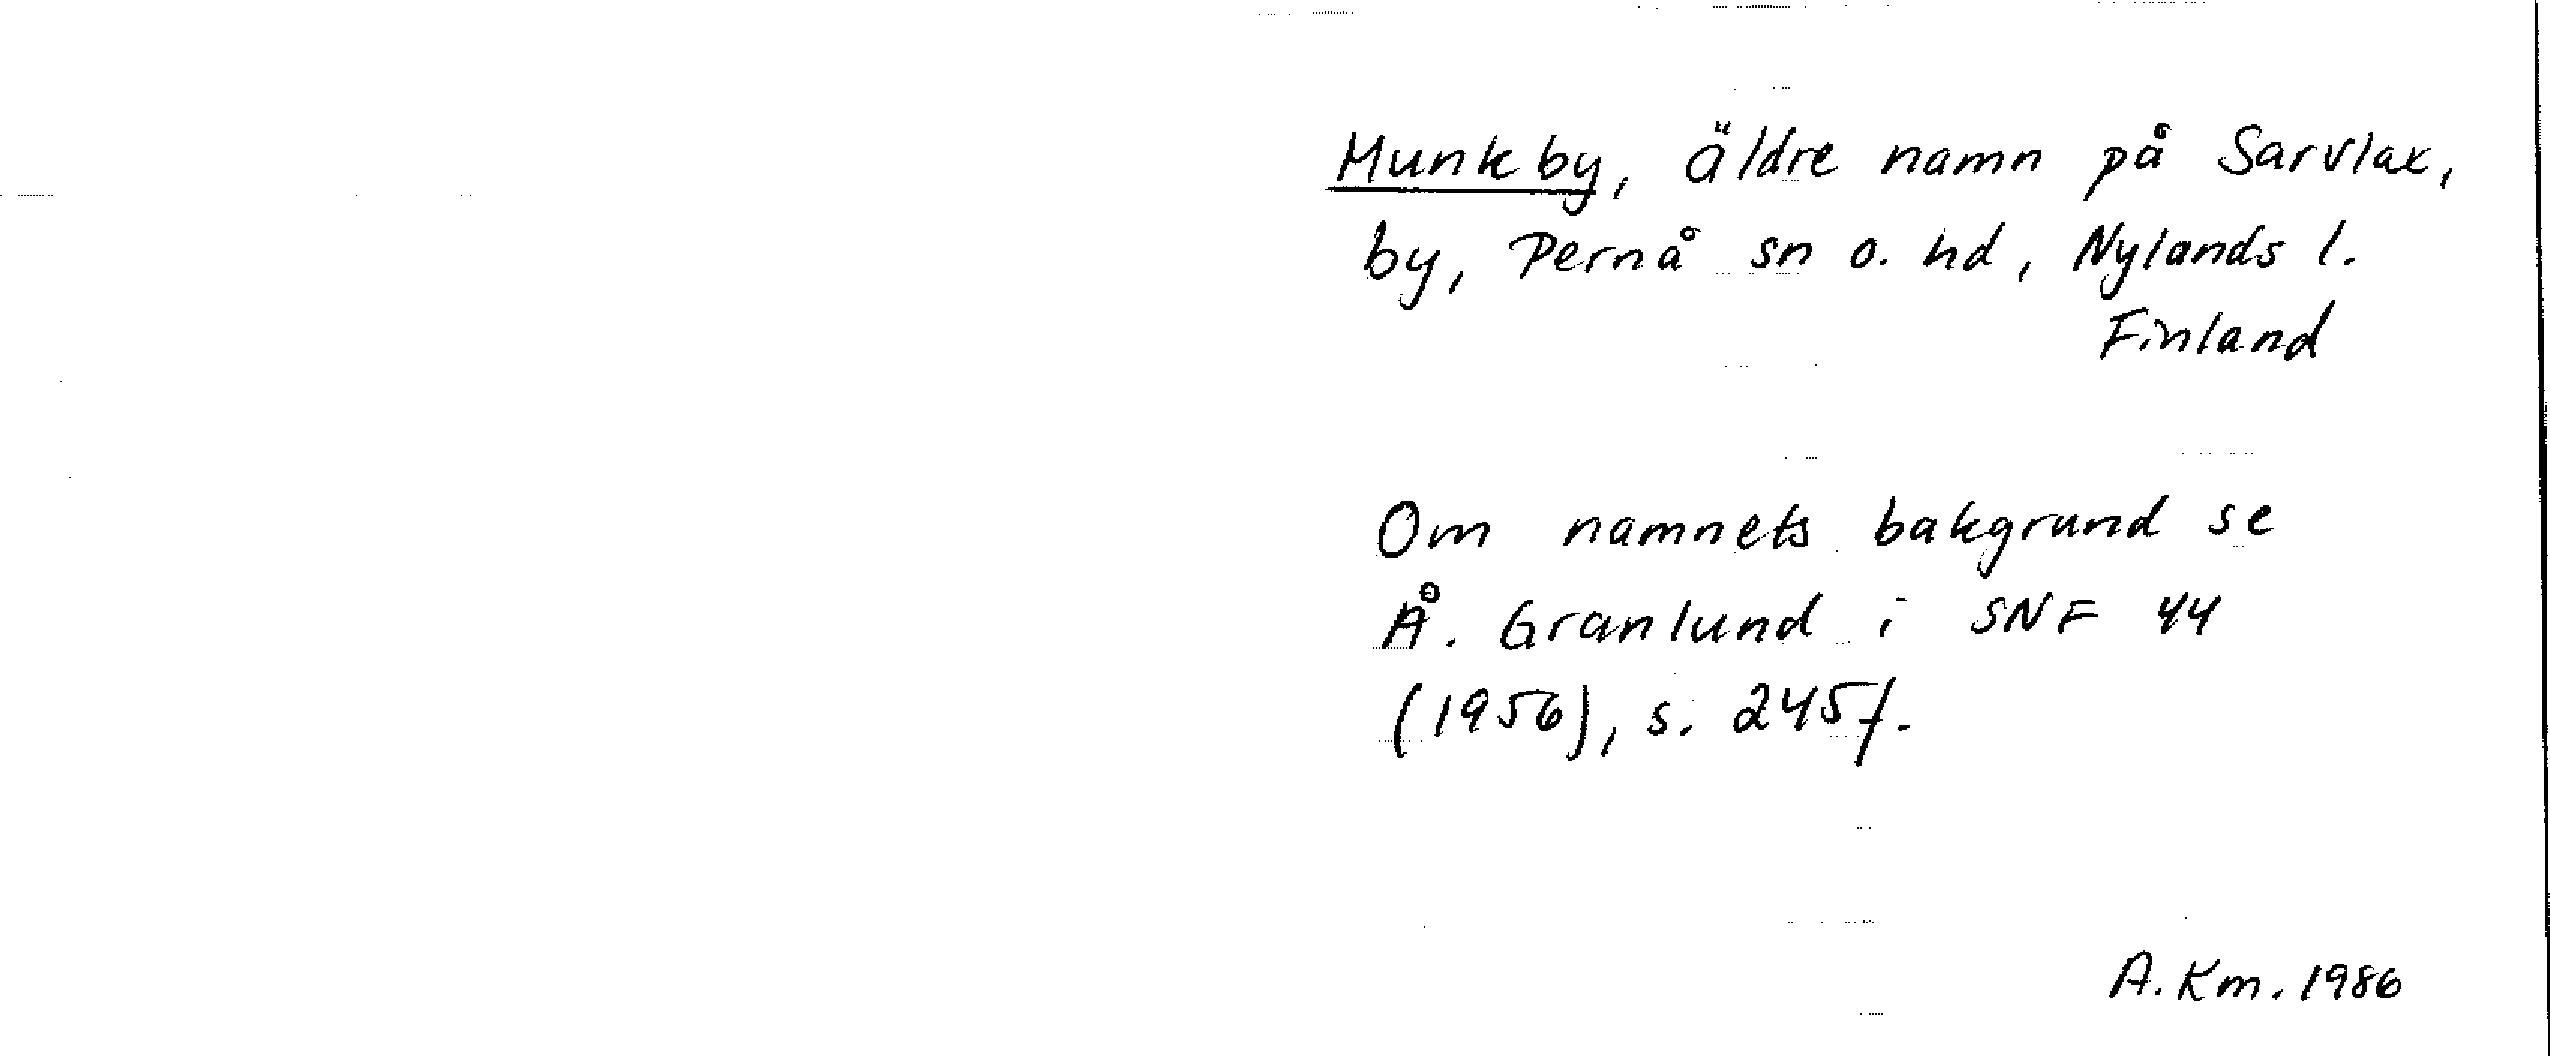 Munkby, äldre namn på Sarvlax,
by, Pernå sn o. hd, Nylands l.
Finland
Om namnets bakgrund se
Å. Granlund i SNF 44
(1956), s. 245f.
A. Km. 1986